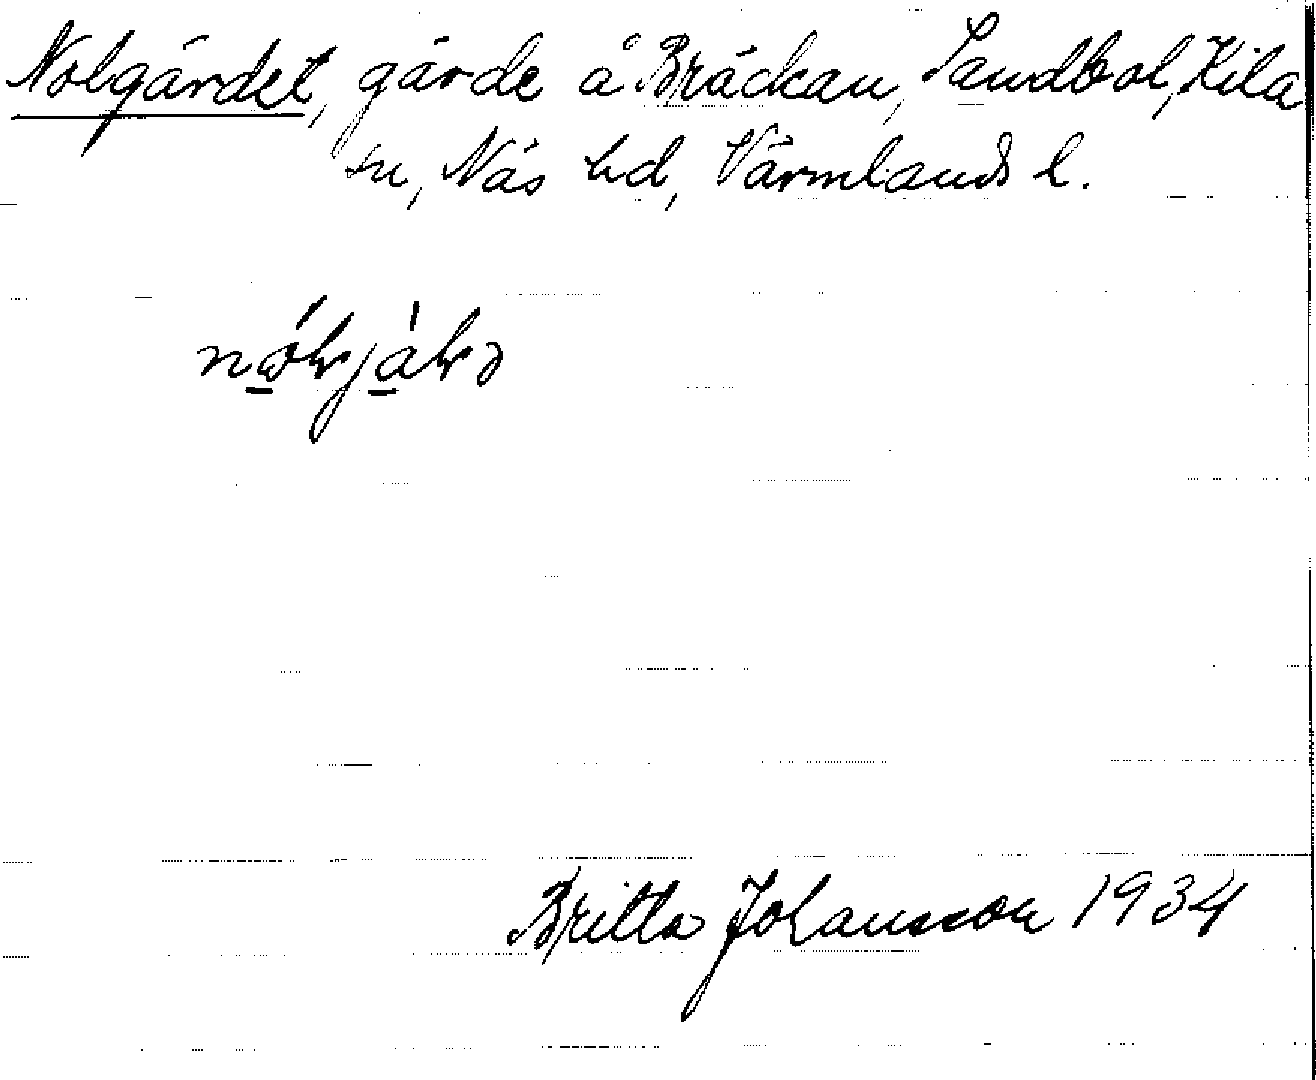 Nolgärdet, gärde å Bräckan, Sandbol, Kila
sn, Näs hd, Värmlands l.
Britta Johansson 1934